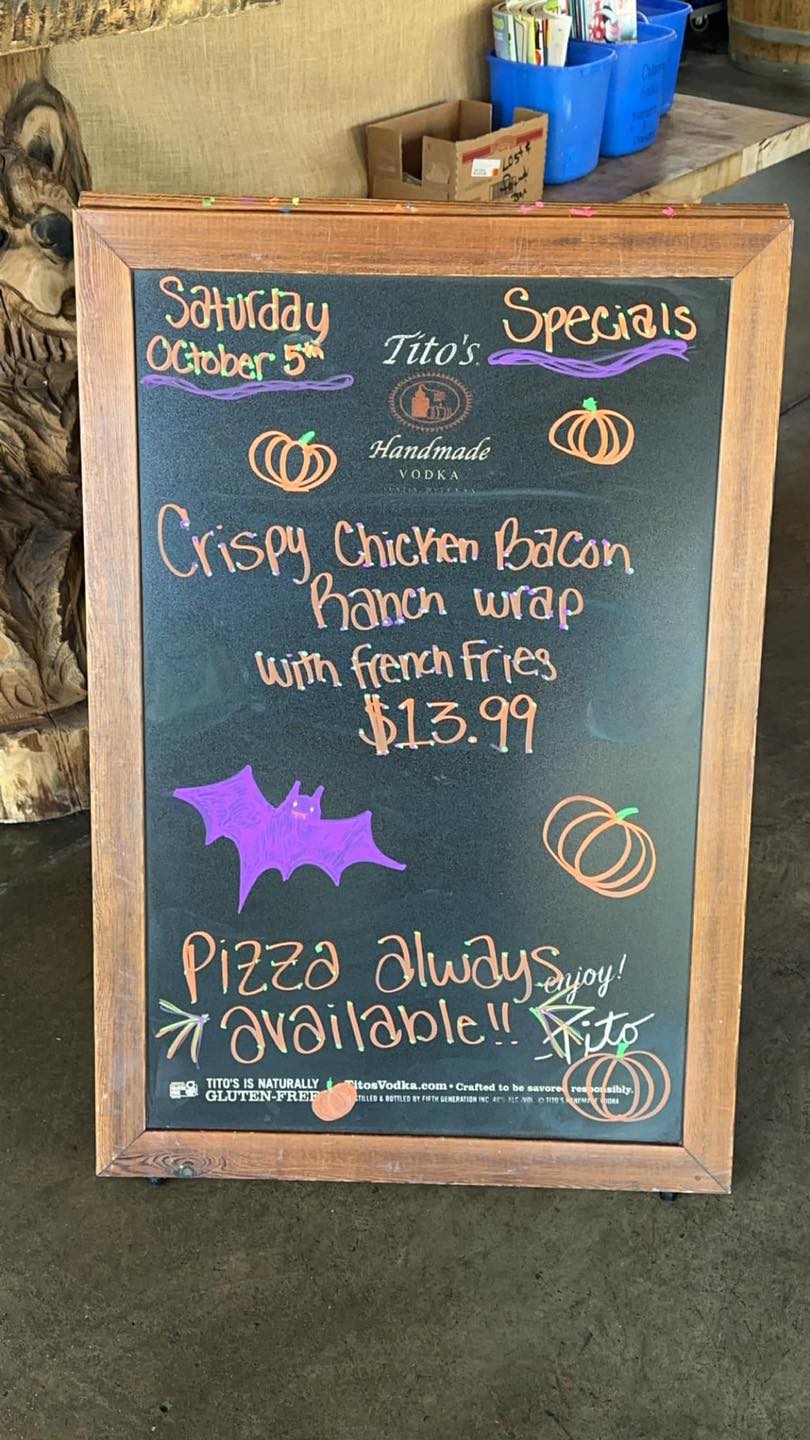 Lost &
found
Saturday
October 5th
Specials
Tito's
Handmade
VODKA
Crispy Chicken Bacon
Ranch wrap
with french fries
$13.99
Pizza always
available!!
enjoy!
Tito
TITO'S IS NATURALLY
GLUTEN-FREE
TitosVodka.com • Crafted to be savored responsibly.
DISTILLED & BOTTLED BY FIFTH GENERATION INC. 40% ALC./VOL. © TITO'S HANDMADE VODKA